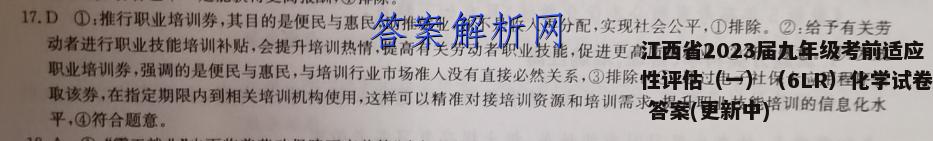 17. D ①:推行职业培训券,其目的是便民与惠民 分配,实现社会公平,①排除。②:给予有关劳
动者进行职业技能培训补贴,会提升培训热情,提高有关劳动者职业技能,促进更高
职业培训券,强调的是便民与惠民,与培训行业市场准入没有直接必然关系,③排除
取该券,在指定期限内到相关培训机构使用,这样可以精准对接培训资源和培训需求 培训的信息化水
平,④符合题意。
答案解析网
江西省2023届九年级考前适应
性评估(一) (6LR) 化学试卷
答案(更新中)